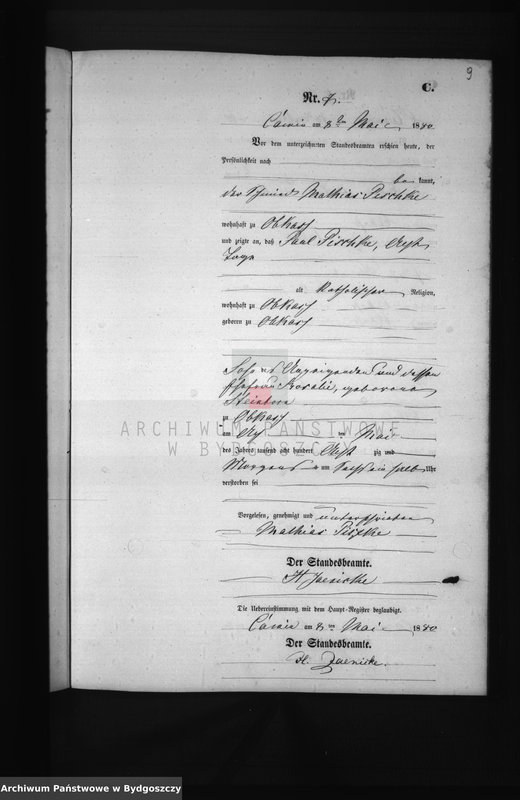 9
C.
Nr. 7.
am 8ten Mai 1880
Vor dem unterzeichneten Standesbeamten erschien heute, der
Persönlichkeit nach
be kannt,
der Schmied Mathias Peschke
wohnhaft zu Obkass
und zeigte an, daß Paul Pischke, acht
Tage
alt katholischer Religion,
wohnhaft zu Obkass
geboren zu Obkass
Sohn des Anzeigenden und dessen
Ehefrau Rosalie, geborene
Steinborn
zu Obkass
am ten Mai
des Jahres tausend acht hundert acht zig und
Morgens um halb Uhr
verstorben sei
Vorgelesen, genehmigt und unterschrieben
Mathias Piszke
Der Standesbeamte.
H Jaenicke
Die Uebereinstimmung mit dem Haupt-Register beglaubigt.
am 8 ten Mai 1880
Der Standesbeamte.
H. Jaenicke.
ARCHIWUM PAŃSTWOWE
W BYDGOSZCZY
Archiwum Państwowe w Bydgoszczy